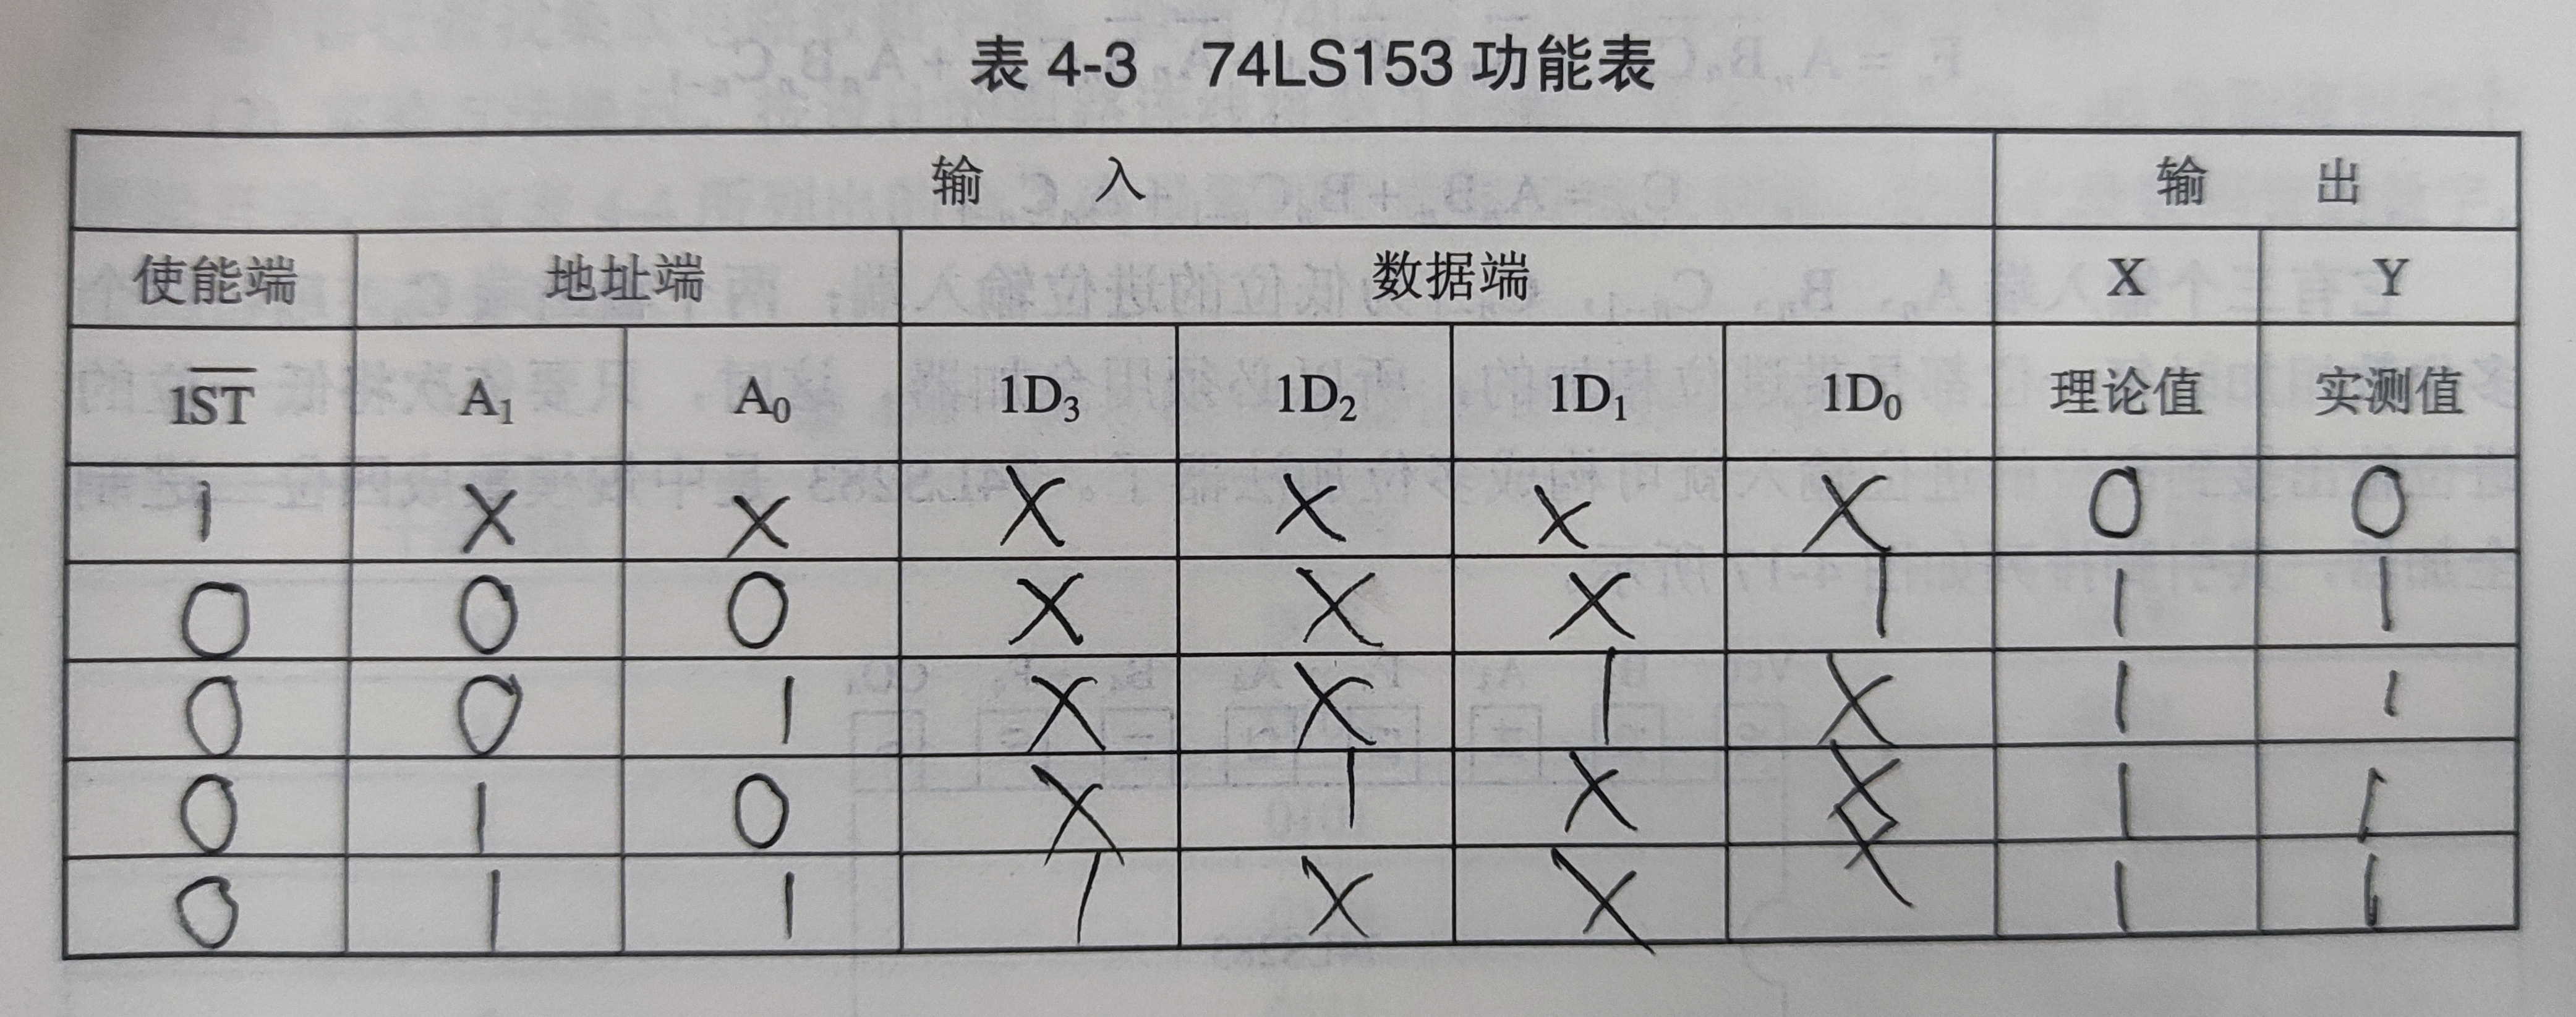 表 4-3 74LS153 功能表
输 入 输 出
使能端 地址端 数据端 X Y
1S̅T̅ A₁ A₀ 1D₃ 1D₂ 1D₁ 1D₀ 理论值 实测值
1 X X X X X X 0 0
0 0 0 X X X 1 1 1
0 0 1 X X 1 X 1 1
0 1 0 X 1 X X 1 1
0 1 1 1 X X X 1 1